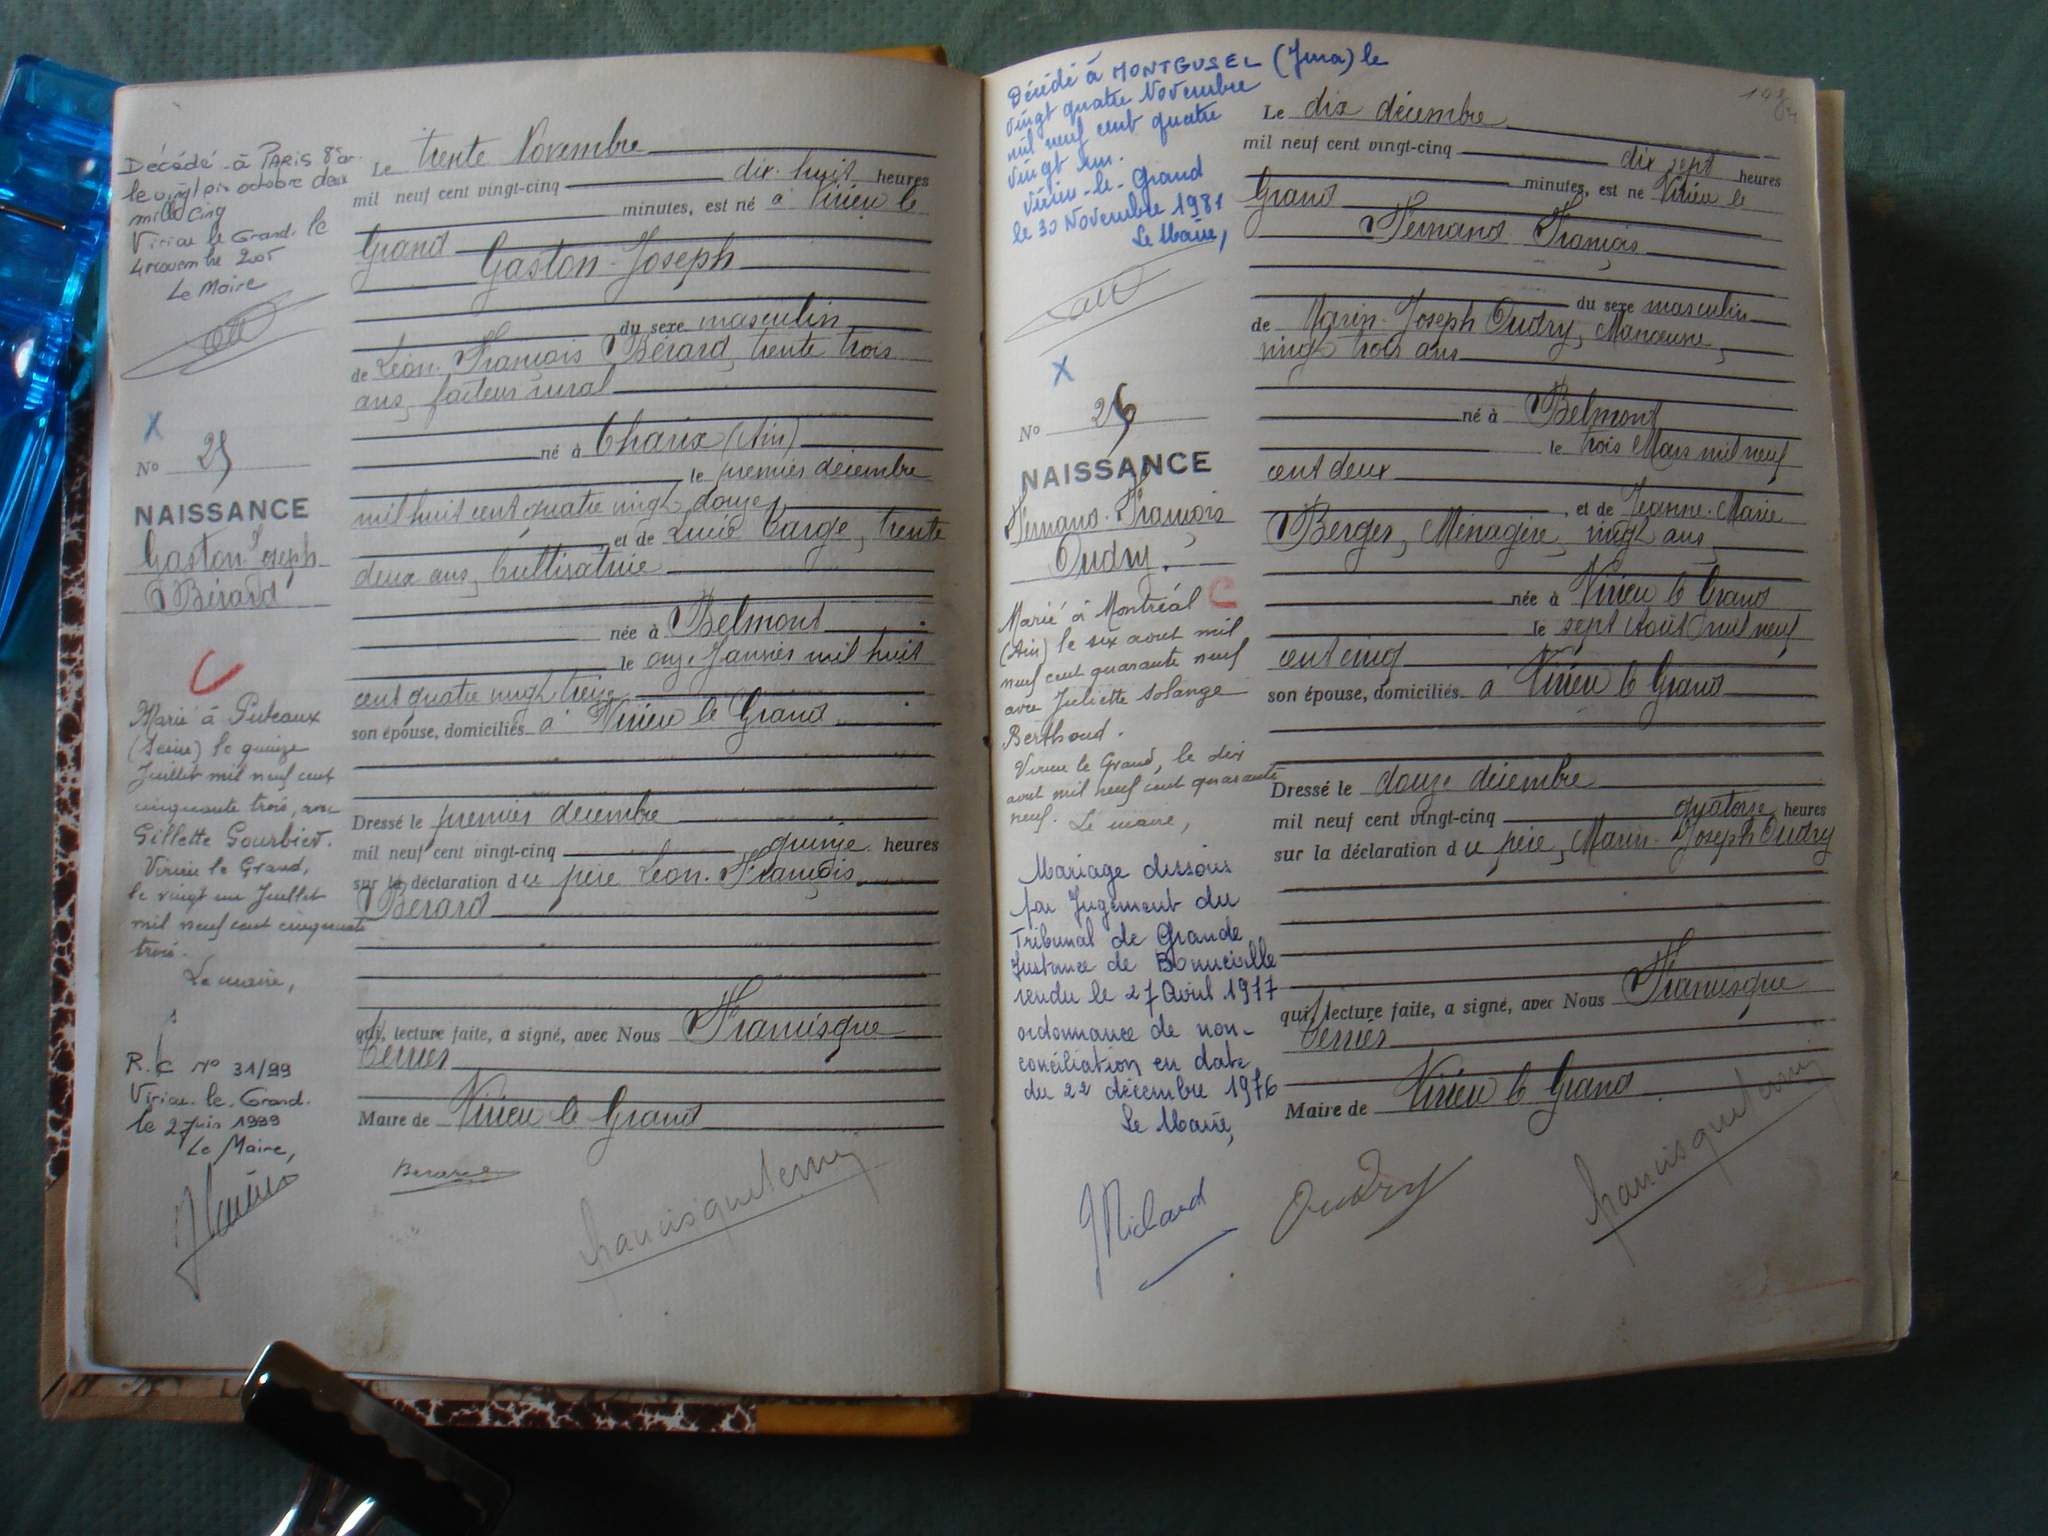 Décédé à PARIS 8è ar.
le vingt six octobre deux
mille cinq
Virieu le Grand, le
4 novembre 2005
Le Maire
X
No 25
NAISSANCE
Gaston Joseph
Bérard
C
Marié à Puteaux
(Seine) le quinze
Juillet mil neuf cent
cinquante trois, avec
Gillette Gourbier.
Virieu le Grand,
le vingt un Juillet
mil neuf cent cinquante
trois.
Le maire,
R.C N° 31/99
Virieu-le-Grand.
le 2 Juin 1999
Le Maire,
Le trente Novembre
mil neuf cent vingt-cinq dix-huit heures
minutes, est né à Virieu le
Grand
Gaston-Joseph
du sexe masculin
de Léon-François Bérard, trente trois
ans, facteur rural
né à Charix (Ain)
le premier décembre
mil huit cent quatre vingt douze
et de Lucie Carge, trente
deux ans, Cultivatrice
née à Belmont
le onze Janvier mil huit
cent quatre vingt treize
son épouse, domiciliés à Virieu le Grand.
Dressé le premier décembre
mil neuf cent vingt-cinq quinze heures
sur la déclaration du père Léon-François
Bérard
qui, lecture faite, a signé, avec Nous Francisque
Maire de Virieu le Grand
Berard
Décédé à MONTGUSEL (Jura) le
vingt quatre Novembre
mil neuf cent quatre
vingt un.
Virieu-le-Grand
le 30 Novembre 1981
Le Maire,
X
No 26
NAISSANCE
Fernand-François
Oudry.
C
Marié à Montréal
(Ain) le six aout mil
neuf cent quarante neuf
avec Juliette Solange
Berthoud.
Virieu le Grand, le dix
aout mil neuf cent quarante
neuf. Le maire,
Mariage dissous
par Jugement du
Tribunal de Grande
Instance de Bonneville
rendu le 27 Avril 1977
ordonnance de non-
conciliation en date
du 22 décembre 1976
Le Maire,
Le dix décembre
mil neuf cent vingt-cinq dix sept heures
minutes, est né Virieu le
Grand
Fernand François
du sexe masculin
de Marin-Joseph Oudry, Manœuvre,
vingt trois ans
né à Belmont
le trois Mars mil neuf
cent deux
, et de Jeanne-Marie
Berger, Ménagère, vingt ans,
née à Virieu le Grand
le sept Août mil neuf
cent cinq
son épouse, domiciliés à Virieu le Grand
Dressé le douze décembre
mil neuf cent vingt-cinq quatorze heures
sur la déclaration du père, Marin-Joseph Oudry
qui, lecture faite, a signé, avec Nous Francisque
Maire de Virieu le Grand
Oudry